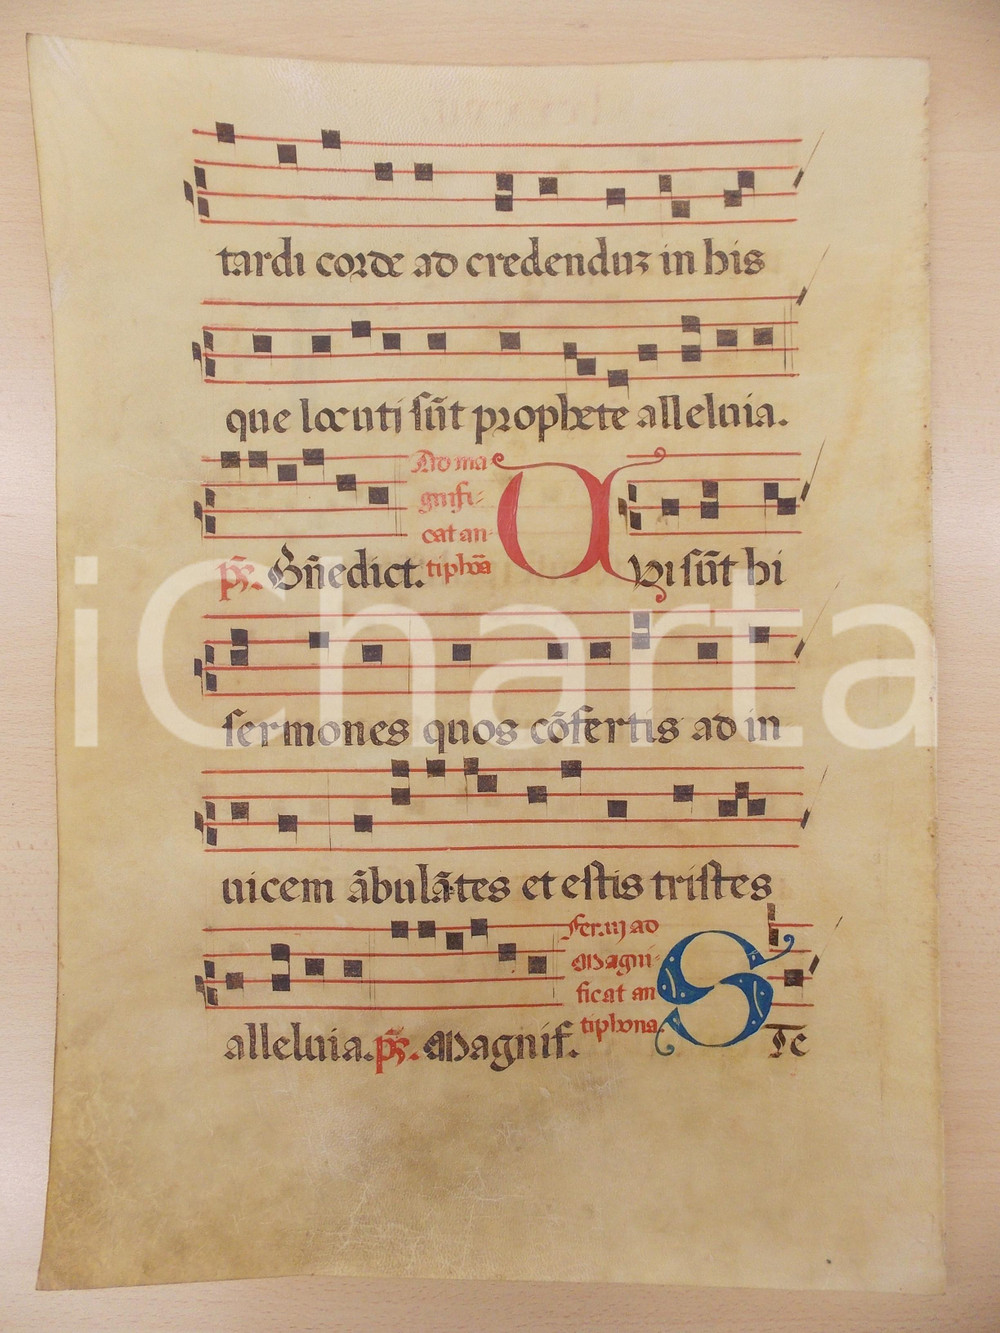 tardi corde ad credenduz in his
que locuti sūt prophete alleluia.
Ad ma
gnifi-
cat an-
tiphōa
ps. Bn̄edict. Qui sūt hi
sermones quos cōfertis ad in
uicem ābulātes et estis tristes
Fer. iij ad
Magni-
ficat an
tiphona.
alleluia. ps. Magnif. Ste
iCharta